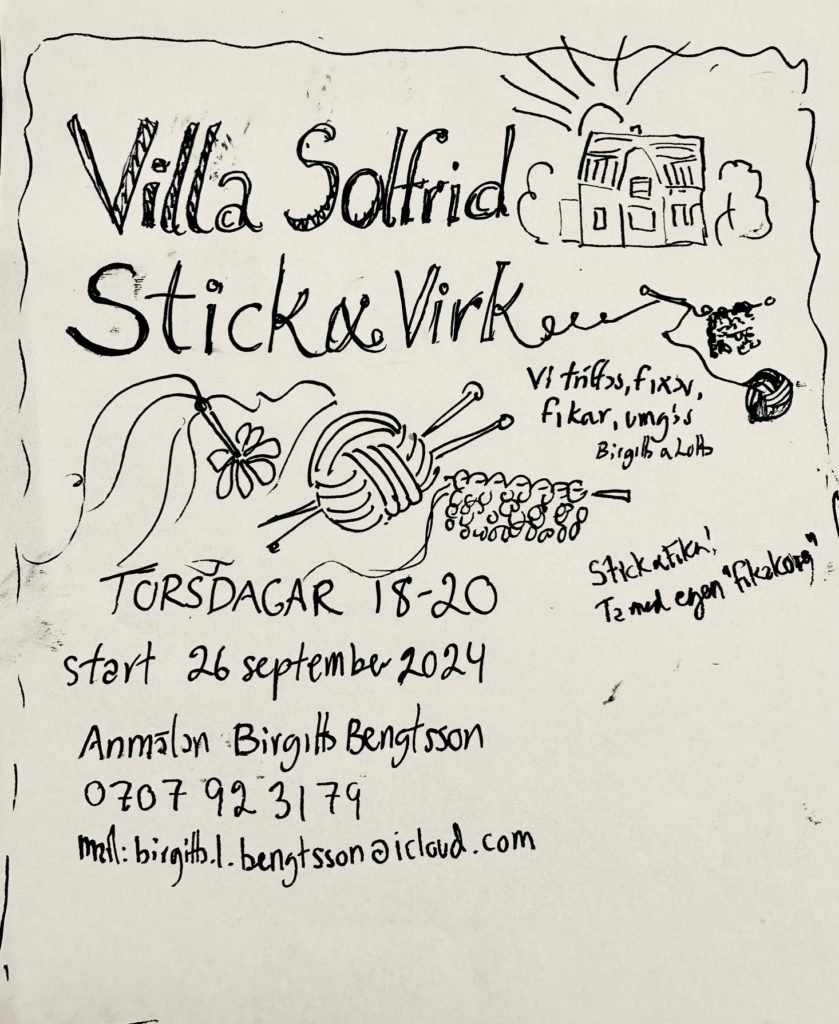 Villa Solfrid
Stick & Virk
Vi träffas, fixar,
fikar, umgås
Birgitta & Lotta
Stick & Fika!
Ta med egen "fikakorg"
TORSDAGAR 18-20
start 26 september 2024
Anmälan Birgitta Bengtsson
0707 92 31 79
mail: birgitta.l.bengtsson@icloud.com